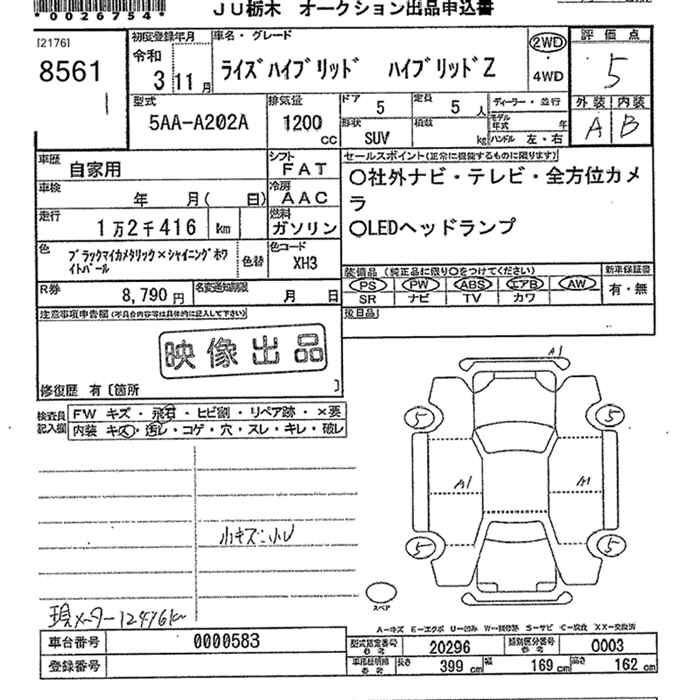 *0026754*
JU栃木 オークション出品申込書
[2176]
8561
初度登録年月
令和
3 11月
車名・グレード
ライズハイブリッド ハイブリッドZ
2WD
4WD
評価点
5
型式
5AA-A202A
排気量
1200
cc
ドア 5
定員 5人
形状
SUV
積数 kg
ディーラー・並行
モデル年式 年
ハンドル 左・右
外装 内装
A B
車歴 自家用
シフト FAT
車検 年 月( 日)
冷房 AAC
走行 1万2千416 km
燃料 ガソリン
色 ブラックマイカメタリック×シャイニングホワイトパール
色替
色コード XH3
R券 8,790円
名変通知期限 月 日
セールスポイント(正常に機能するものに限ります)
〇社外ナビ・テレビ・全方位カメ
ラ
〇LEDヘッドランプ
装備品(純正品に限り〇をつけてください)
新車保証書
PS PW ABS エアB AW
有・無
SR ナビ TV カワ
後日品
注意事項申告欄(不具合内容等は具体的に記入して下さい)
映像出品
修復歴 有〔箇所 〕
検査員記入欄
FW キズ・飛石・ヒビ割・リペア跡・×要
内装 キズ・汚レ・コゲ・穴・スレ・キレ・破レ
A1
5 5
A1 A1
5 5
小キズ:小U
スペア
現メーター12416km
A-キズ E-エクボ U-凹み W-補修跡 S-サビ C-腐食 XX-交換済
車台番号 0000583
登録番号
型式指定番号 参考 20296
類別区分番号 参考 0003
車検証明細 参考 長さ 399cm 幅 169cm 高さ 162cm